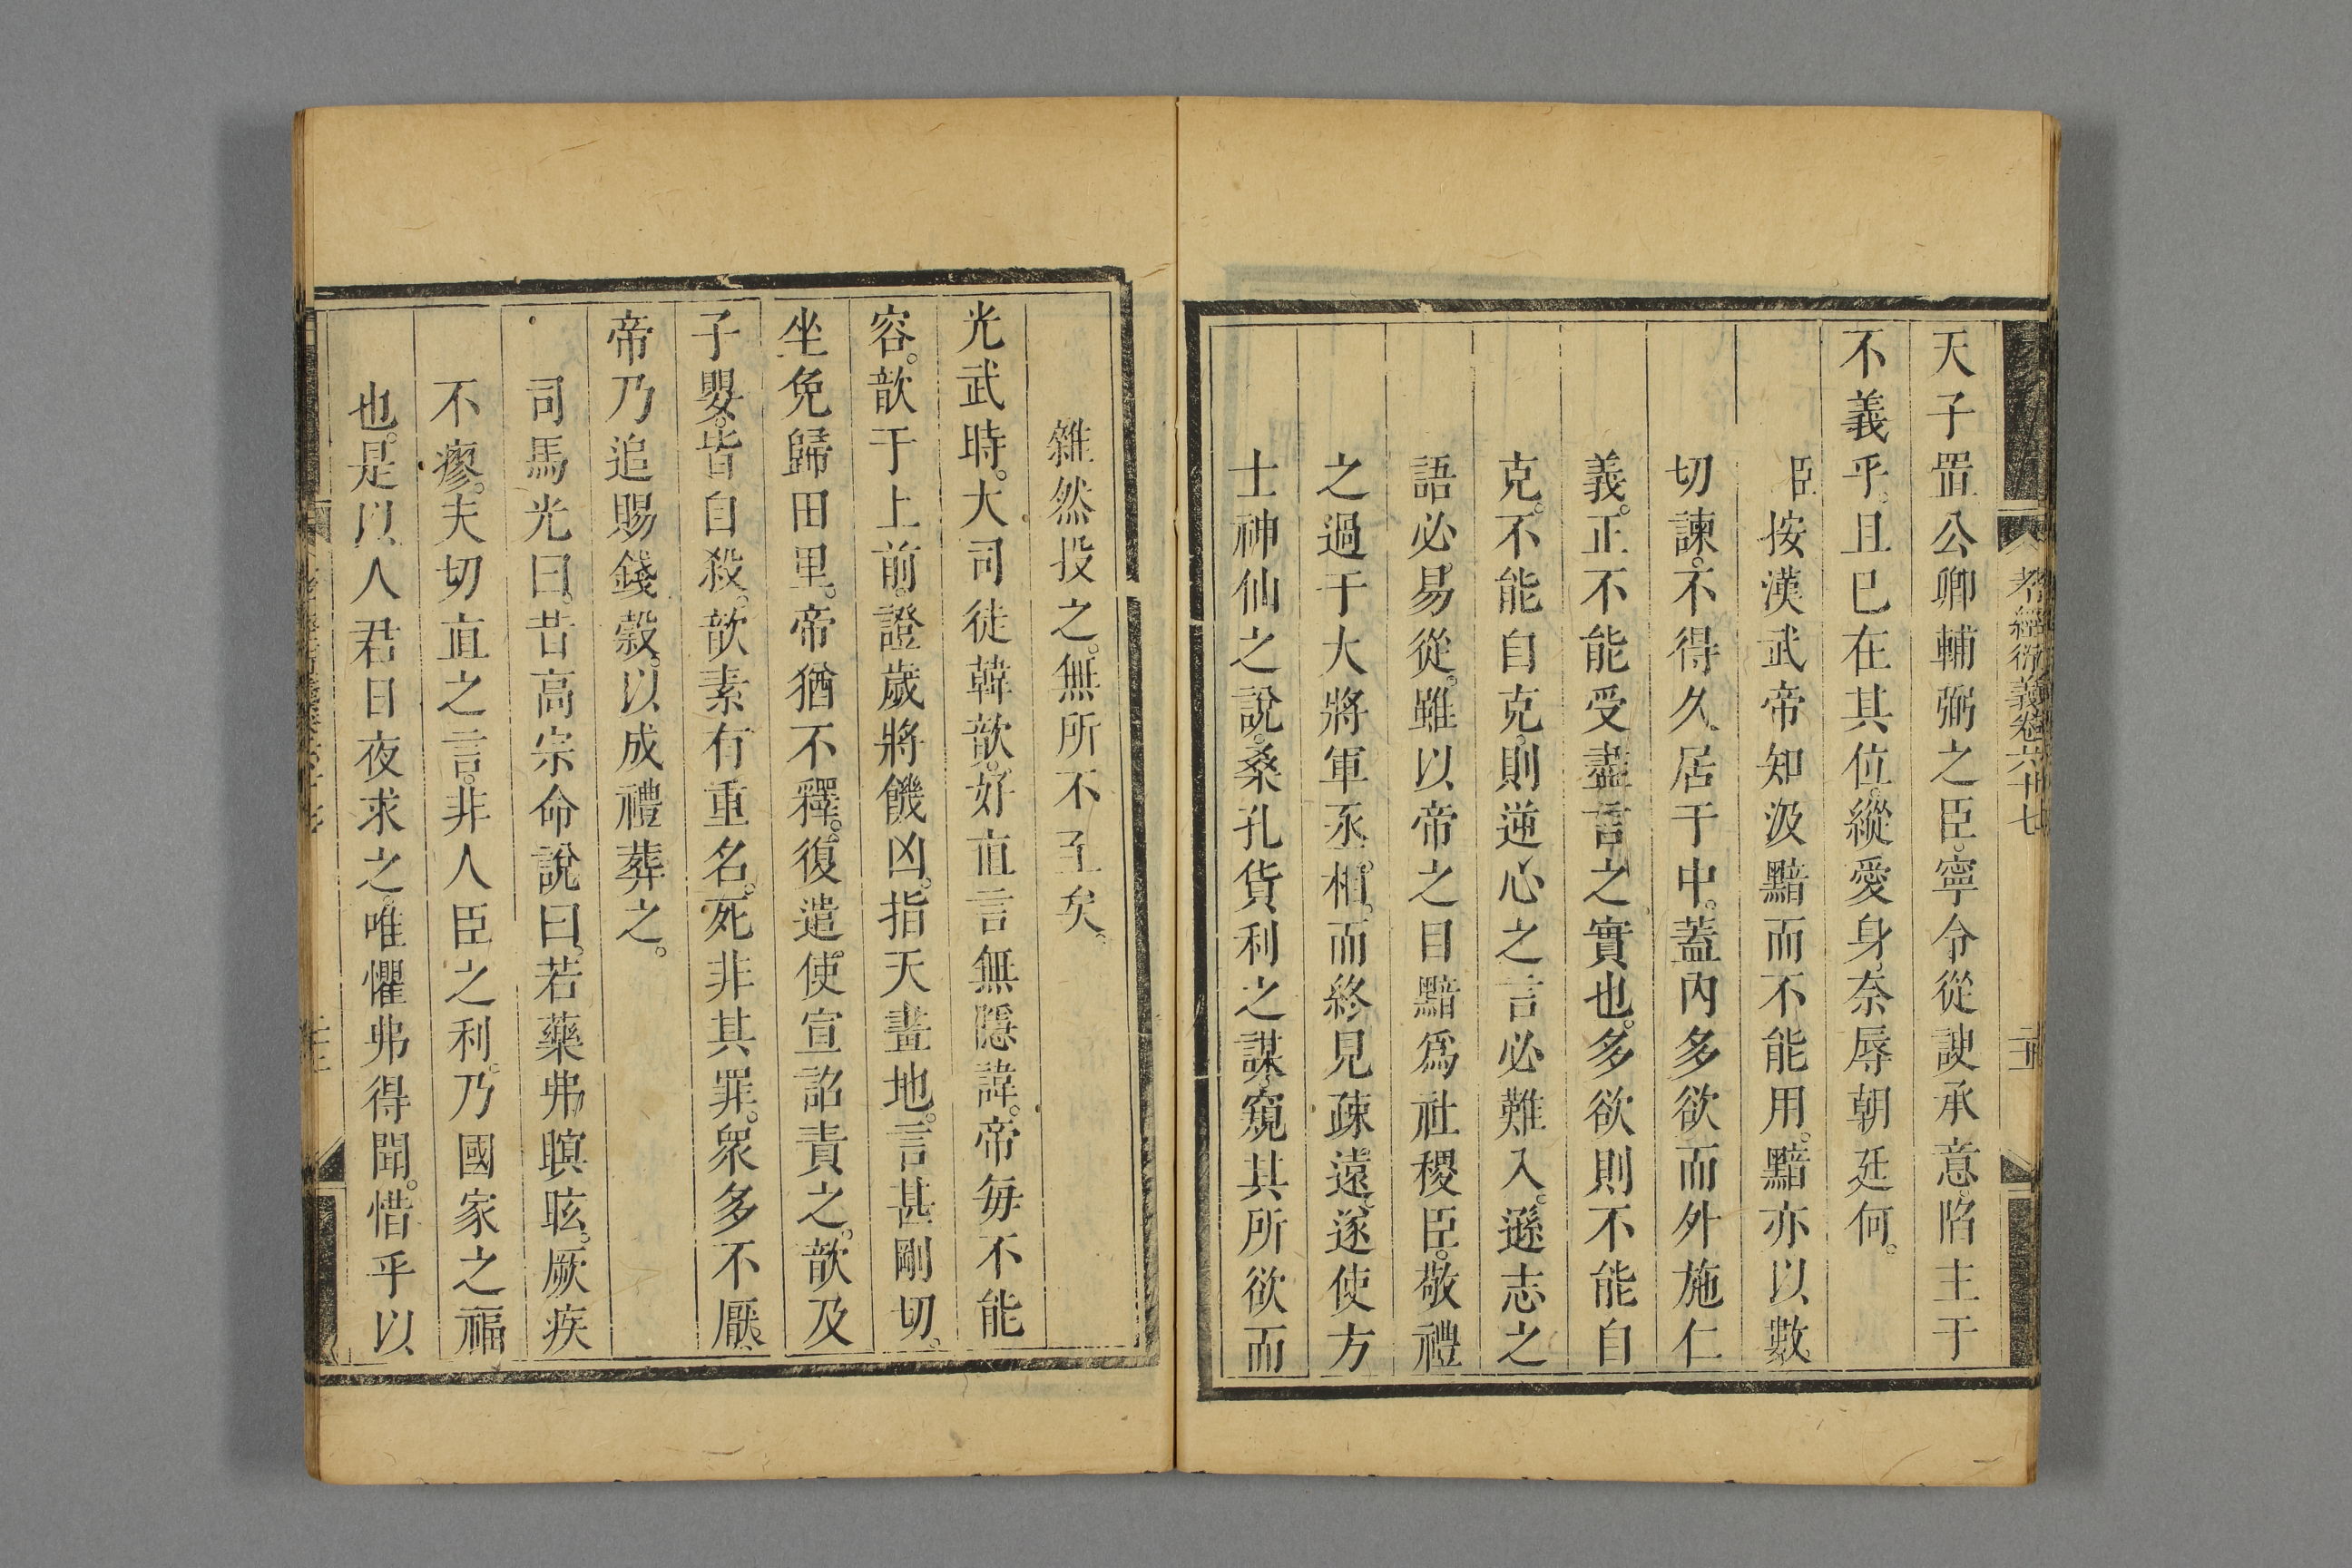 孝經衍義卷六十七
天子置公卿輔弼之臣。寧令從諛承意。陷主于
不義乎。且已在其位。縱愛身。奈辱朝廷何。
臣按漢武帝知汲黯而不能用。黯亦以數
切諫。不得久居于中。蓋內多欲而外施仁
義。正不能受盡言之實也。多欲則不能自
克。不能自克。則逆心之言必難入。遜志之
語必易從。雖以帝之目黯爲社稷臣。敬禮
之過于大將軍丞相。而終見疎遠。遂使方
士神仙之說。桑孔貨利之謀。窺其所欲而
雜然投之。無所不至矣。
光武時。大司徒韓歆。好直言無隱諱。帝每不能
容。歆于上前。證歲將饑凶。指天畫地。言甚剛切。
坐免歸田里。帝猶不釋。復遣使宣詔責之。歆及
子嬰。皆自殺。歆素有重名。死非其罪。眾多不厭。
帝乃追賜錢穀。以成禮葬之。
司馬光曰。昔高宗命說曰。若藥弗瞑眩。厥疾
不瘳。夫切直之言。非人臣之利。乃國家之福
也。是以人君日夜求之。唯懼弗得聞。惜乎以